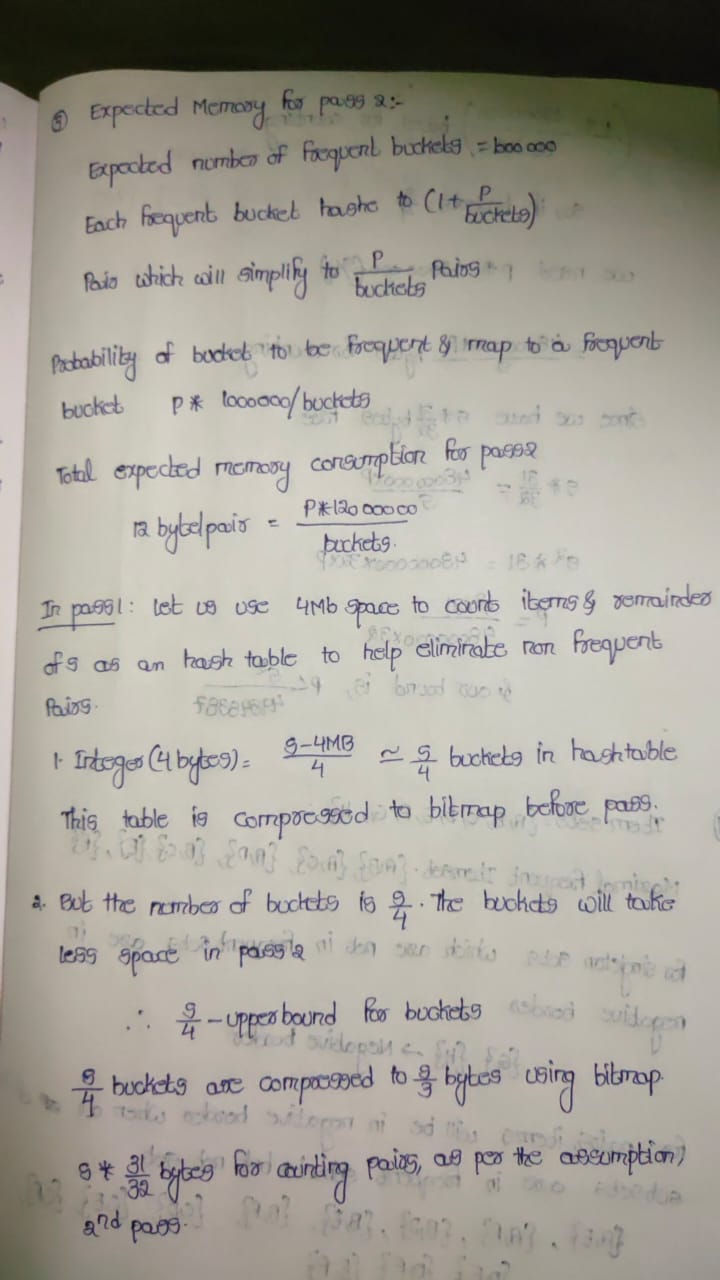 ⑤ Expected Memory for pass 2:-
Expected number of frequent buckets = 1000 000
Each frequent bucket hashe to (1+ P/buckets)
Pairs which will simplify to P/buckets Pairs
Probability of bucket to be frequent & map to a frequent
bucket P* 1000000/buckets
Total expected memory consumption for pass2
12 bytes/pair = P*12000000/buckets.
In pass1: let us use 4Mb space to count items & remainder
of s as an hash table to help eliminate non frequent
Pairs.
1. Integer (4 bytes) = S-4MB/4 ≃ S/4 buckets in hashtable
This table is compressed to bitmap before pass.
2. But the number of buckets is S/4. The buckets will take
less space in pass 2
∴ S/4 - upperbound for buckets
S/4 buckets are compressed to bytes using bitmap.
S * 31/32 bytes for counting pairs, as per the assumption,
2nd pass.